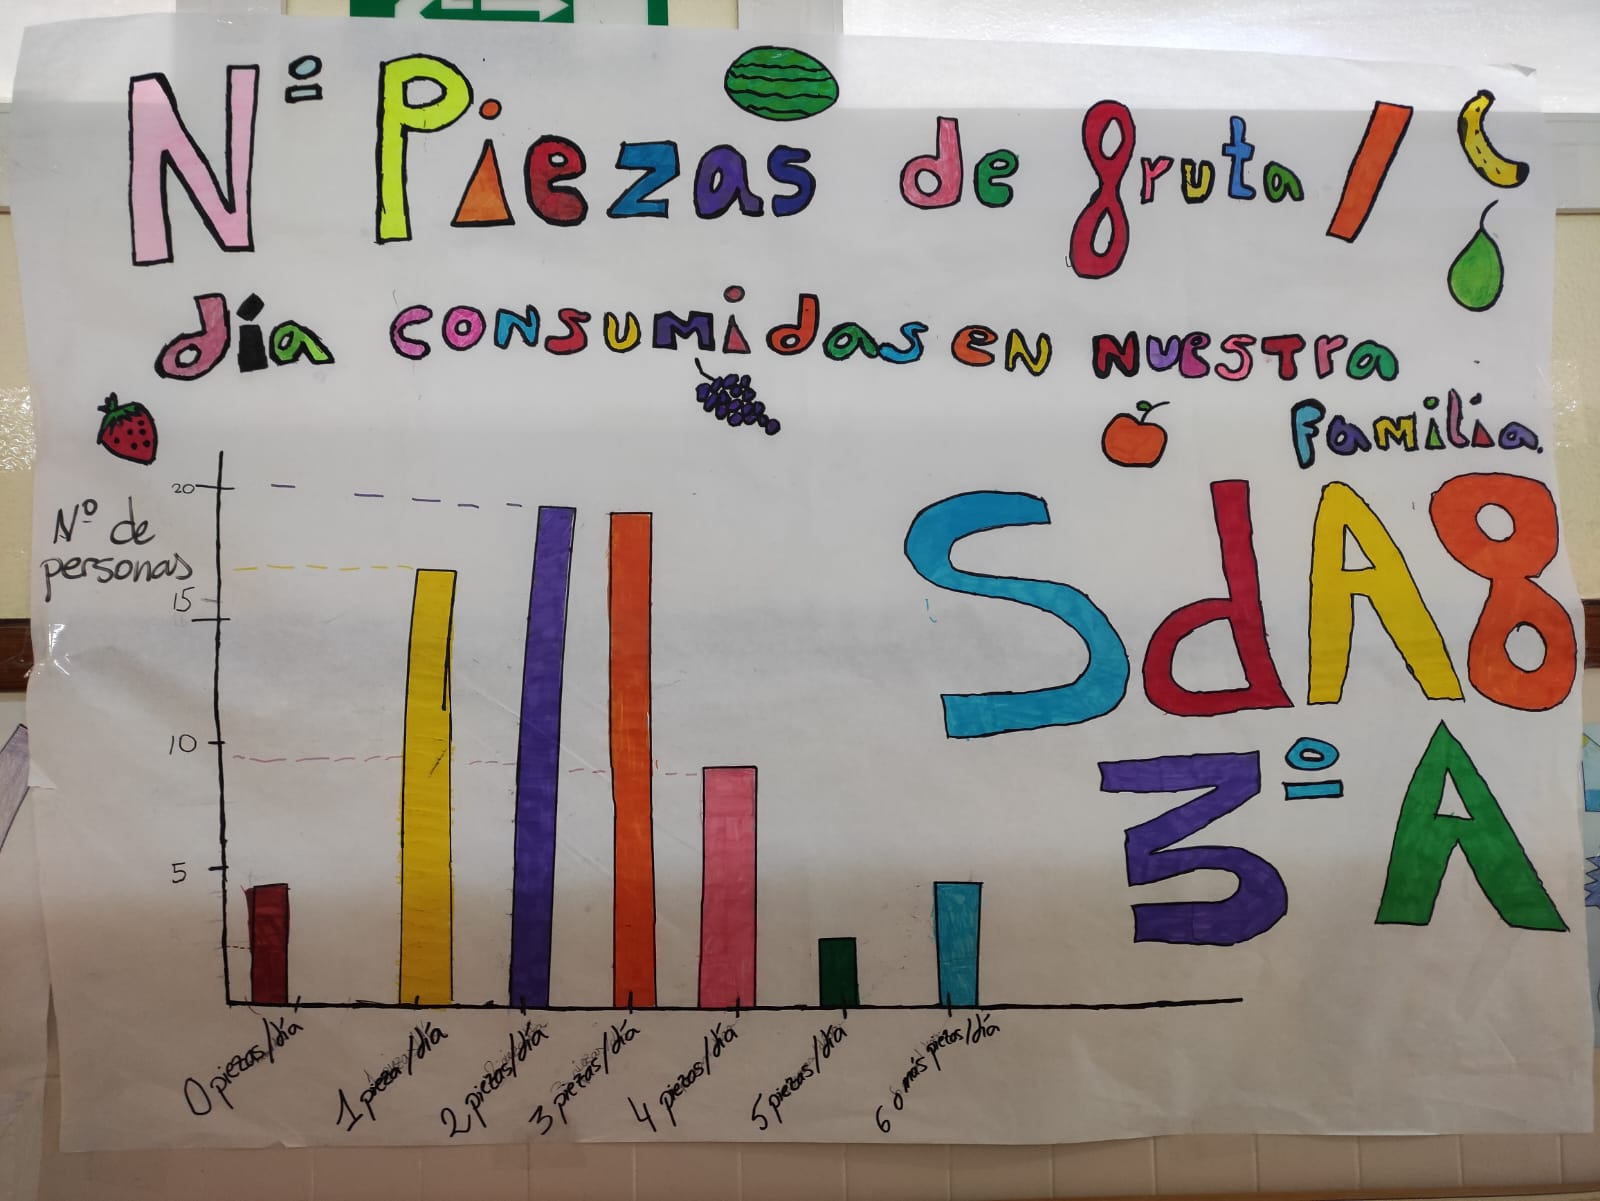 Nº Piezas de fruta /
día consumidas en nuestra
familia.
Nº de
personas
20
15
10
5
0 piezas/día
1 pieza/día
2 piezas/día
3 piezas/día
4 piezas/día
5 piezas/día
6 o más piezas/día
SdA 8
3º A